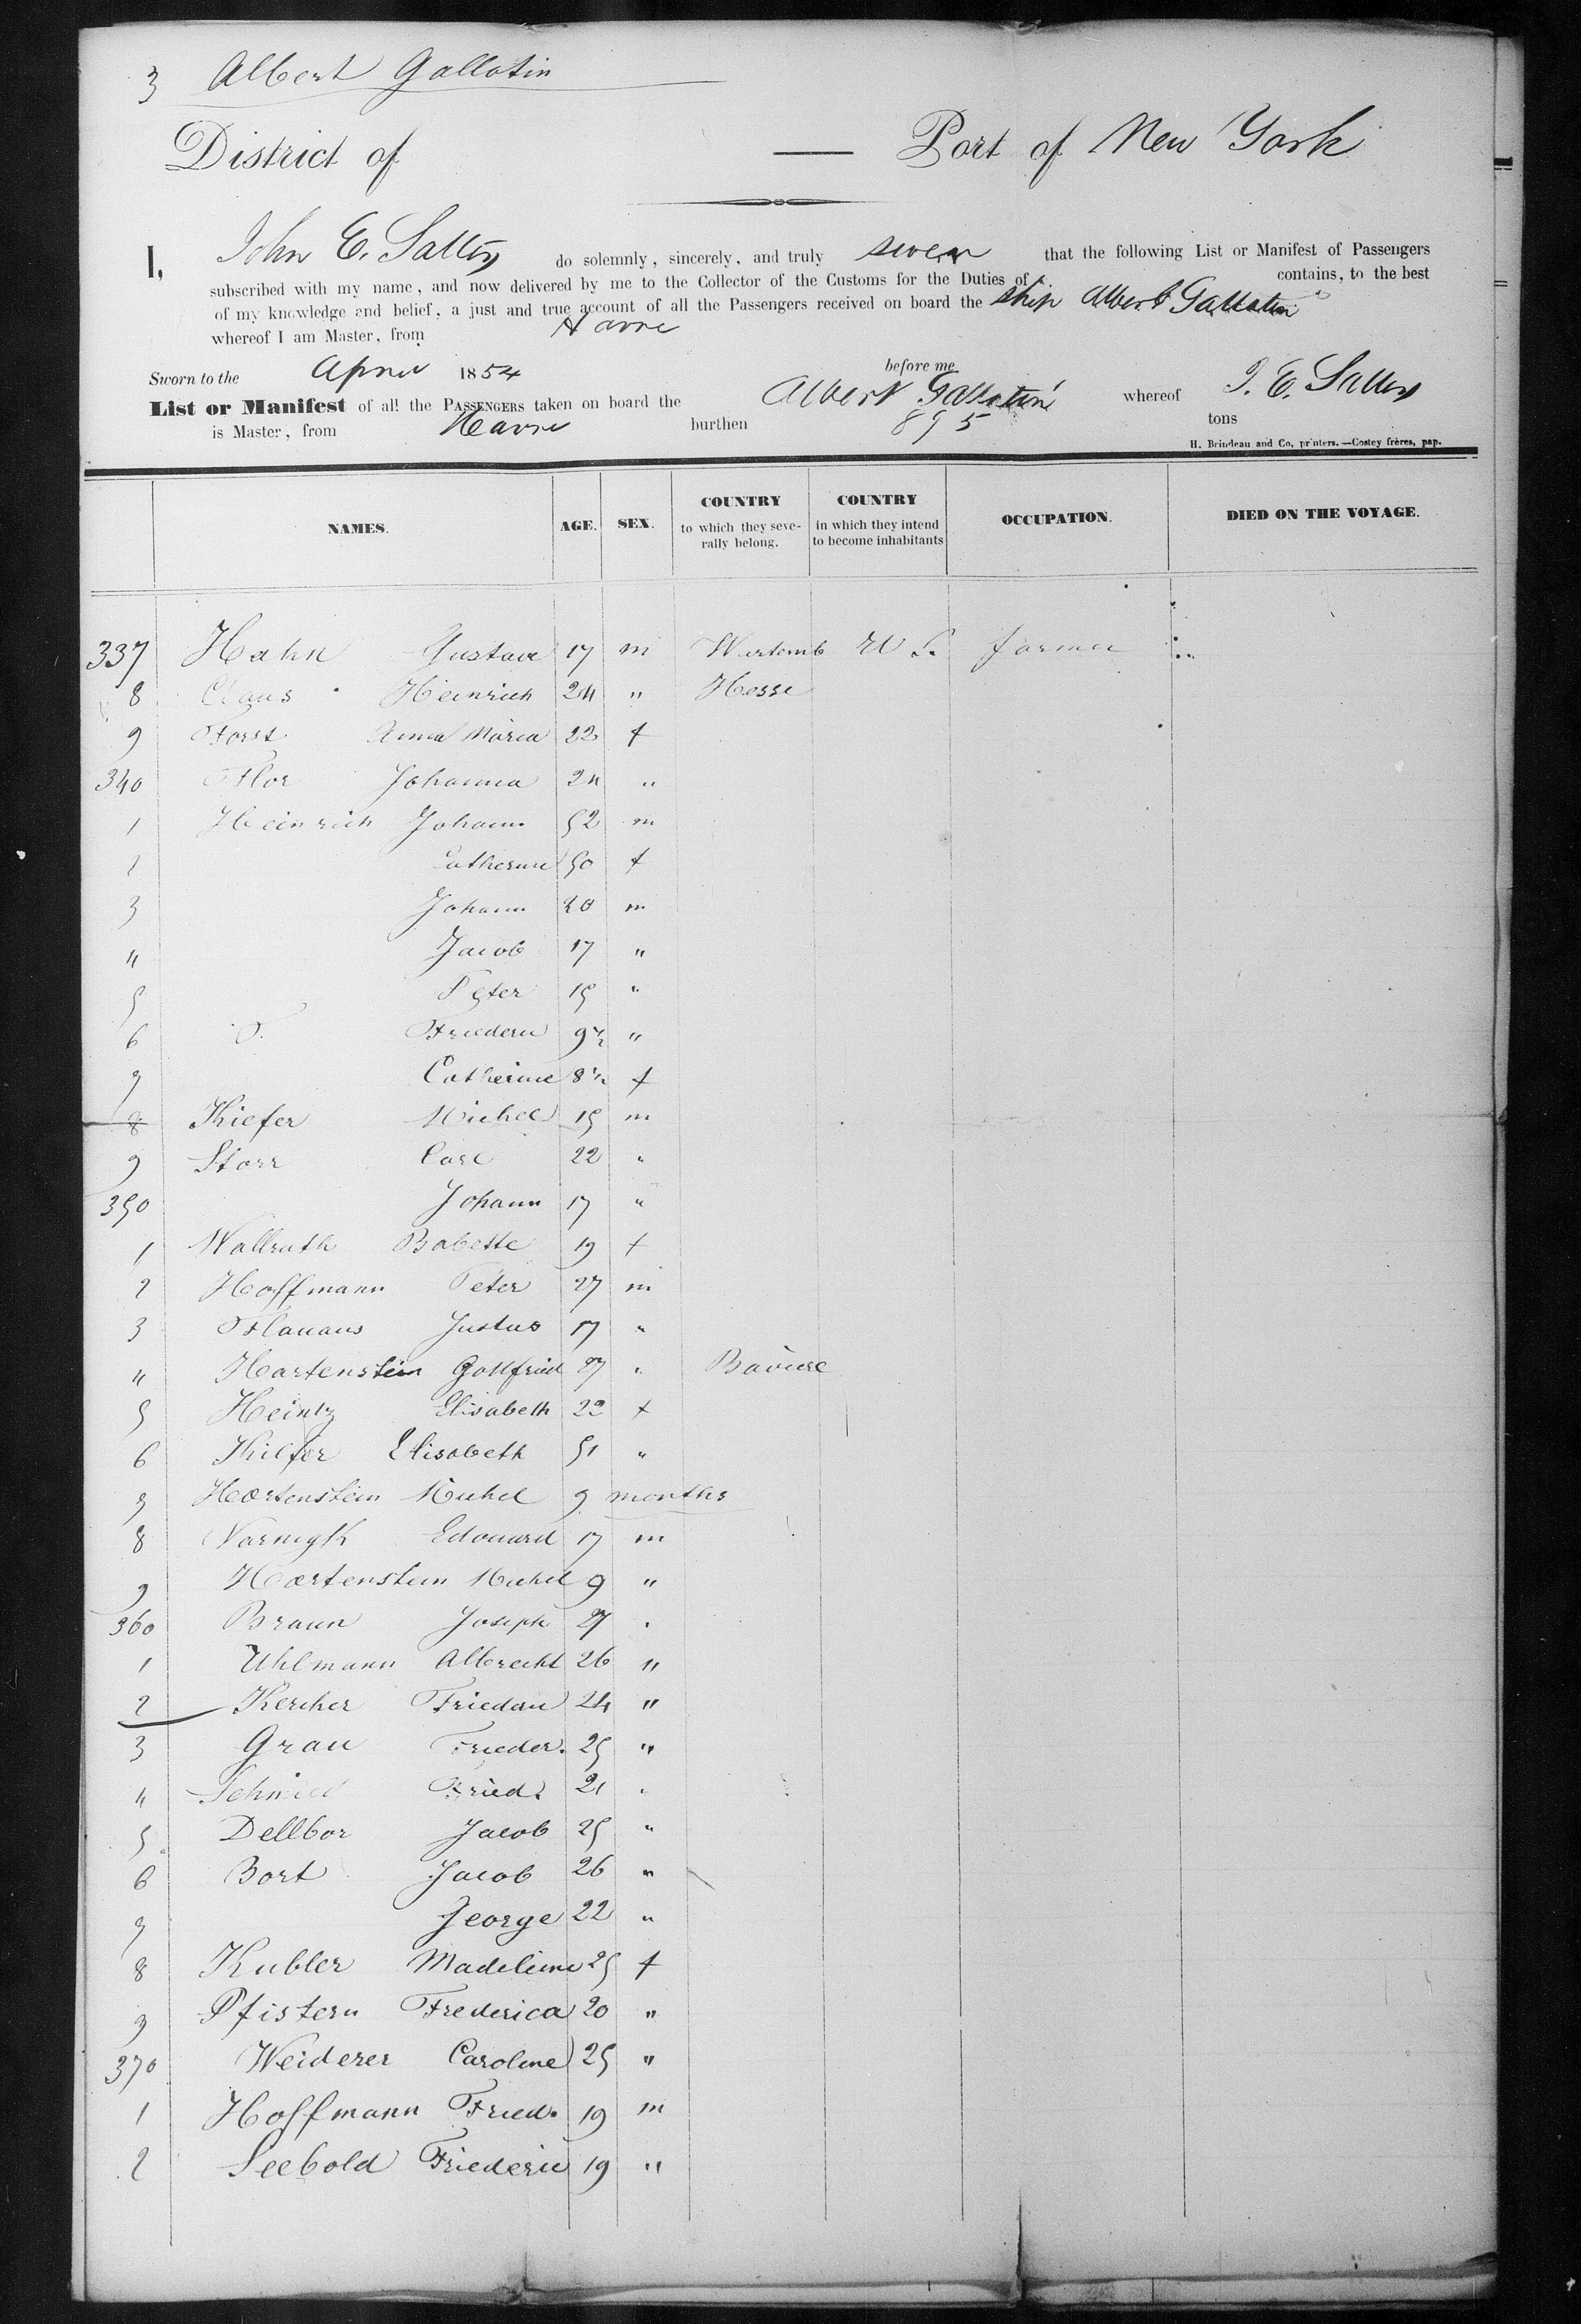 3 Albert Gallatin
District of — Port of New York
I, John E. Salter do solemnly, sincerely, and truly swear that the following List or Manifest of Passengers
subscribed with my name, and now delivered by me to the Collector of the Customs for the Duties of contains, to the best
of my knowledge and belief, a just and true account of all the Passengers received on board the ship Albert Gallatin
whereof I am Master, from Havre
Sworn to the April 1854 before me
List or Manifest of all the PASSENGERS taken on board the Albert Gallatin whereof J. E. Salter
is Master, from Havre burthen 895 tons
H. Brindeau and Co, printers.—Costey frères, pap.
NAMES. AGE. SEX. COUNTRY to which they severally belong. COUNTRY in which they intend to become inhabitants OCCUPATION. DIED ON THE VOYAGE.
337 Hahn Gustave 17 m Wurtemb U S. farmer
8 Claus Heinrich 24 " Hesse
9 Forst Anna Maria 22 f
340 Flor Johanna 24 "
1 Heinrich Johann 52 m
1 Catherine 50 f
3 Johann 20 m
4 Jacob 17 "
5 Peter 15 "
6 Friederic 9½ "
7 Catherine 8½ f
8 Kiefer Michel 15 m
9 Storr Carl 22 "
350 Johann 17 "
1 Wallruth Babette 19 f
2 Hoffmann Peter 27 m
3 Flauaus Justus 17 "
4 Hartenstein Gottfried 27 " Baviere
5 Heintz Elisabeth 22 f
6 Kiefer Elisabeth 51 "
7 Hartenstein Michel 9 months
8 Edouard 17 m
9 Hartenstein Michel 9 "
360 Braun Joseph 27 "
1 Uhlmann Albrecht 26 "
2 Kercher 24 "
3 Grau Frieder. 25 "
4 Schmid Fried. 21 "
5 Dellbor Jacob 25 "
6 Bort Jacob 26 "
7 George 22 "
8 Kubler Madeleine 25 f
9 Pfistern Frederica 20 "
370 Weiderer Caroline 25 "
1 Hoffmann Fried. 19 m
2 Seebold Friederic 19 "